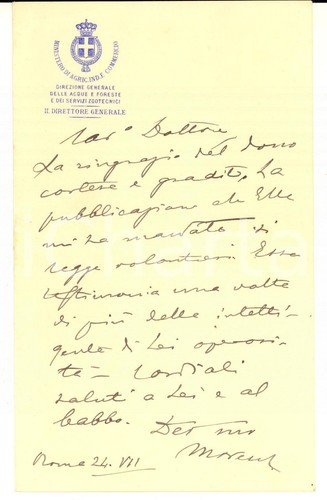 MINISTERO DI AGRIC. IND. E COMMERCIO
DIREZIONE GENERALE
DELLE ACQUE E FORESTE
E DEI SERVIZI ZOOTECNICI
IL DIRETTORE GENERALE
Car° Dottore
La ringrazio del dono
cortese e gradito. La
pubblicazione che Ella
mi ha mandato si
legge volentieri. Essa
testimonia una volta
di più della intelli-
gente di Lei operosi-
tà – Cordiali
saluti a Lei e al
babbo.
Dev suo
Roma 24. VII